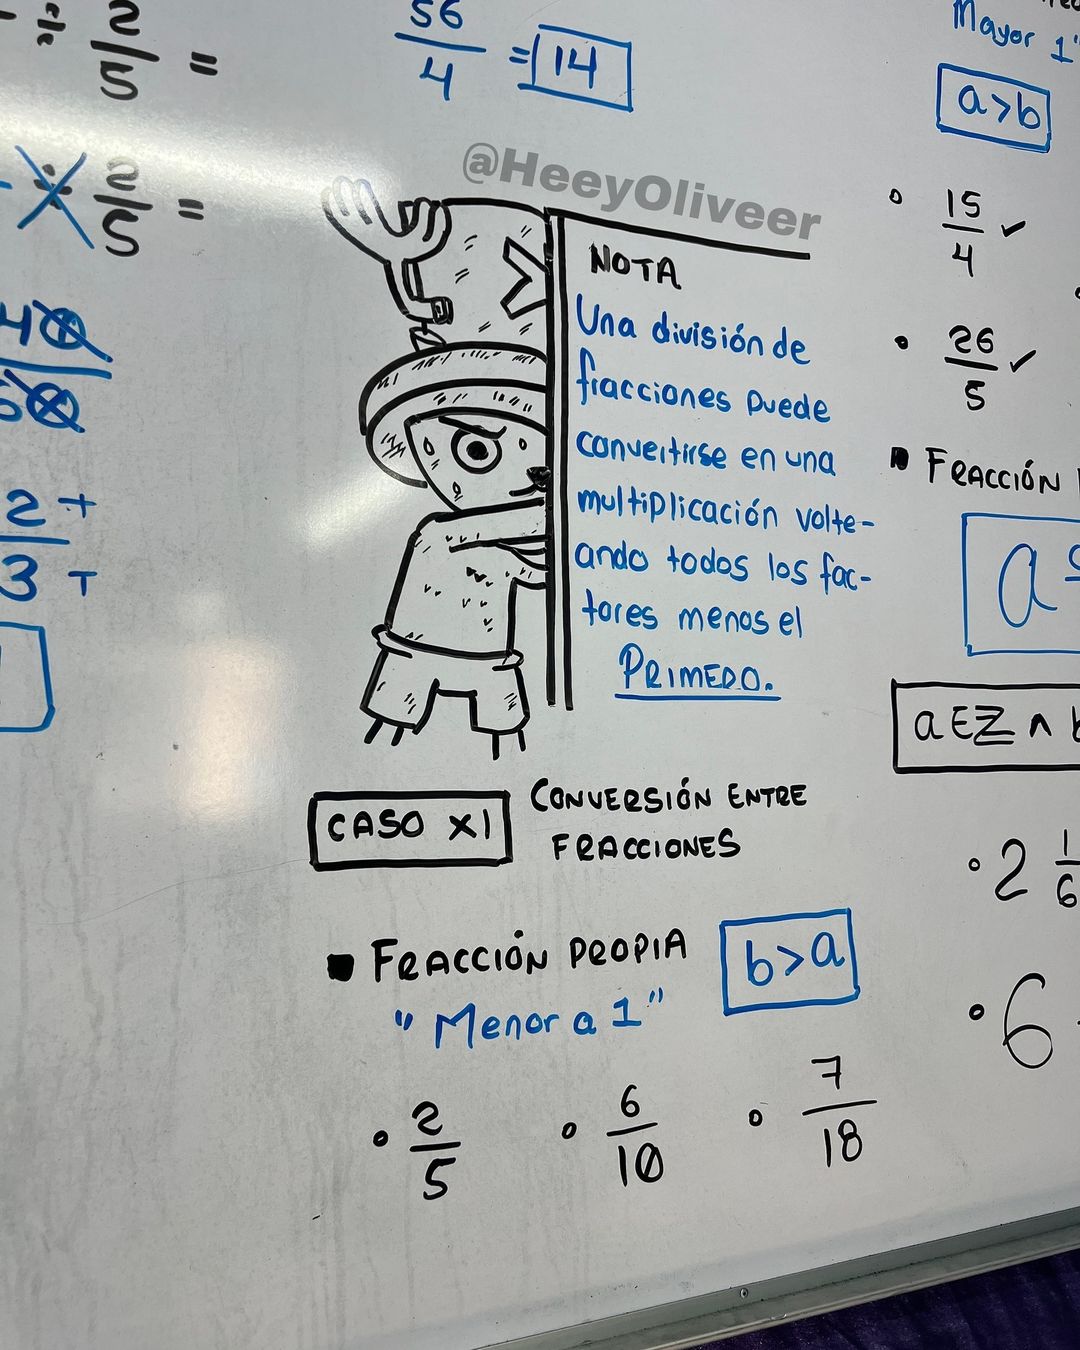 ÷ 2/5 =
÷ 2/5 =
2 +
3 +
56/4 = 14
@HeeyOliveer
NOTA
Una división de
fracciones puede
convertirse en una
multiplicación volte-
ando todos los fac-
tores menos el
PRIMERO.
CASO XI
CONVERSIÓN ENTRE
FRACCIONES
FRACCIÓN PROPIA
b>a
"Menor a 1"
2/5
6/10
7/18
Mayor 1"
a>b
15/4 ✓
26/5 ✓
FRACCIÓN
a
a ∈ Z ∧
2 1/6
6